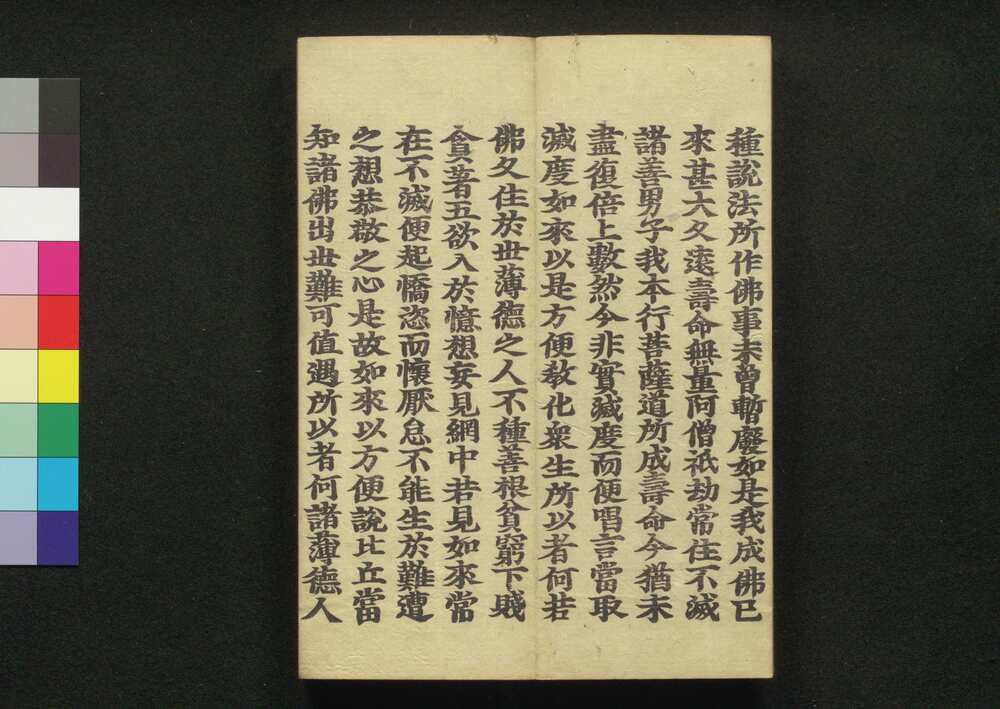 種說法所作佛事未曾暫廢如是我成佛已
來甚大久遠壽命無量阿僧祇劫常住不滅
諸善男子我本行菩薩道所成壽命今猶未
盡復倍上數然今非實滅度而便唱言當取
滅度如來以是方便教化衆生所以者何若
佛久住於世薄德之人不種善根貧窮下賤
貪著五欲入於憶想妄見網中若見如來常
在不滅便起憍恣而懷厭怠不能生於難遭
之想恭敬之心是故如來以方便說比丘當
知諸佛出世難可值遇所以者何諸薄德人